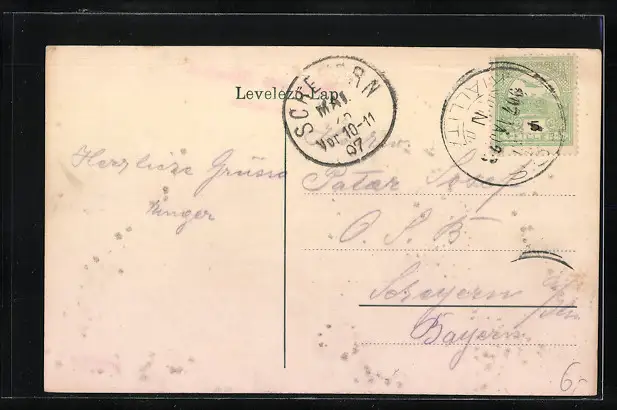 Levelező-Lap.
SCHEYERN
MAI.
Vor. 10-11
07
Herzliche Grüsse
Ringer
Pater Josef
O. S. B.
Scheyern
Bayern.
6,-